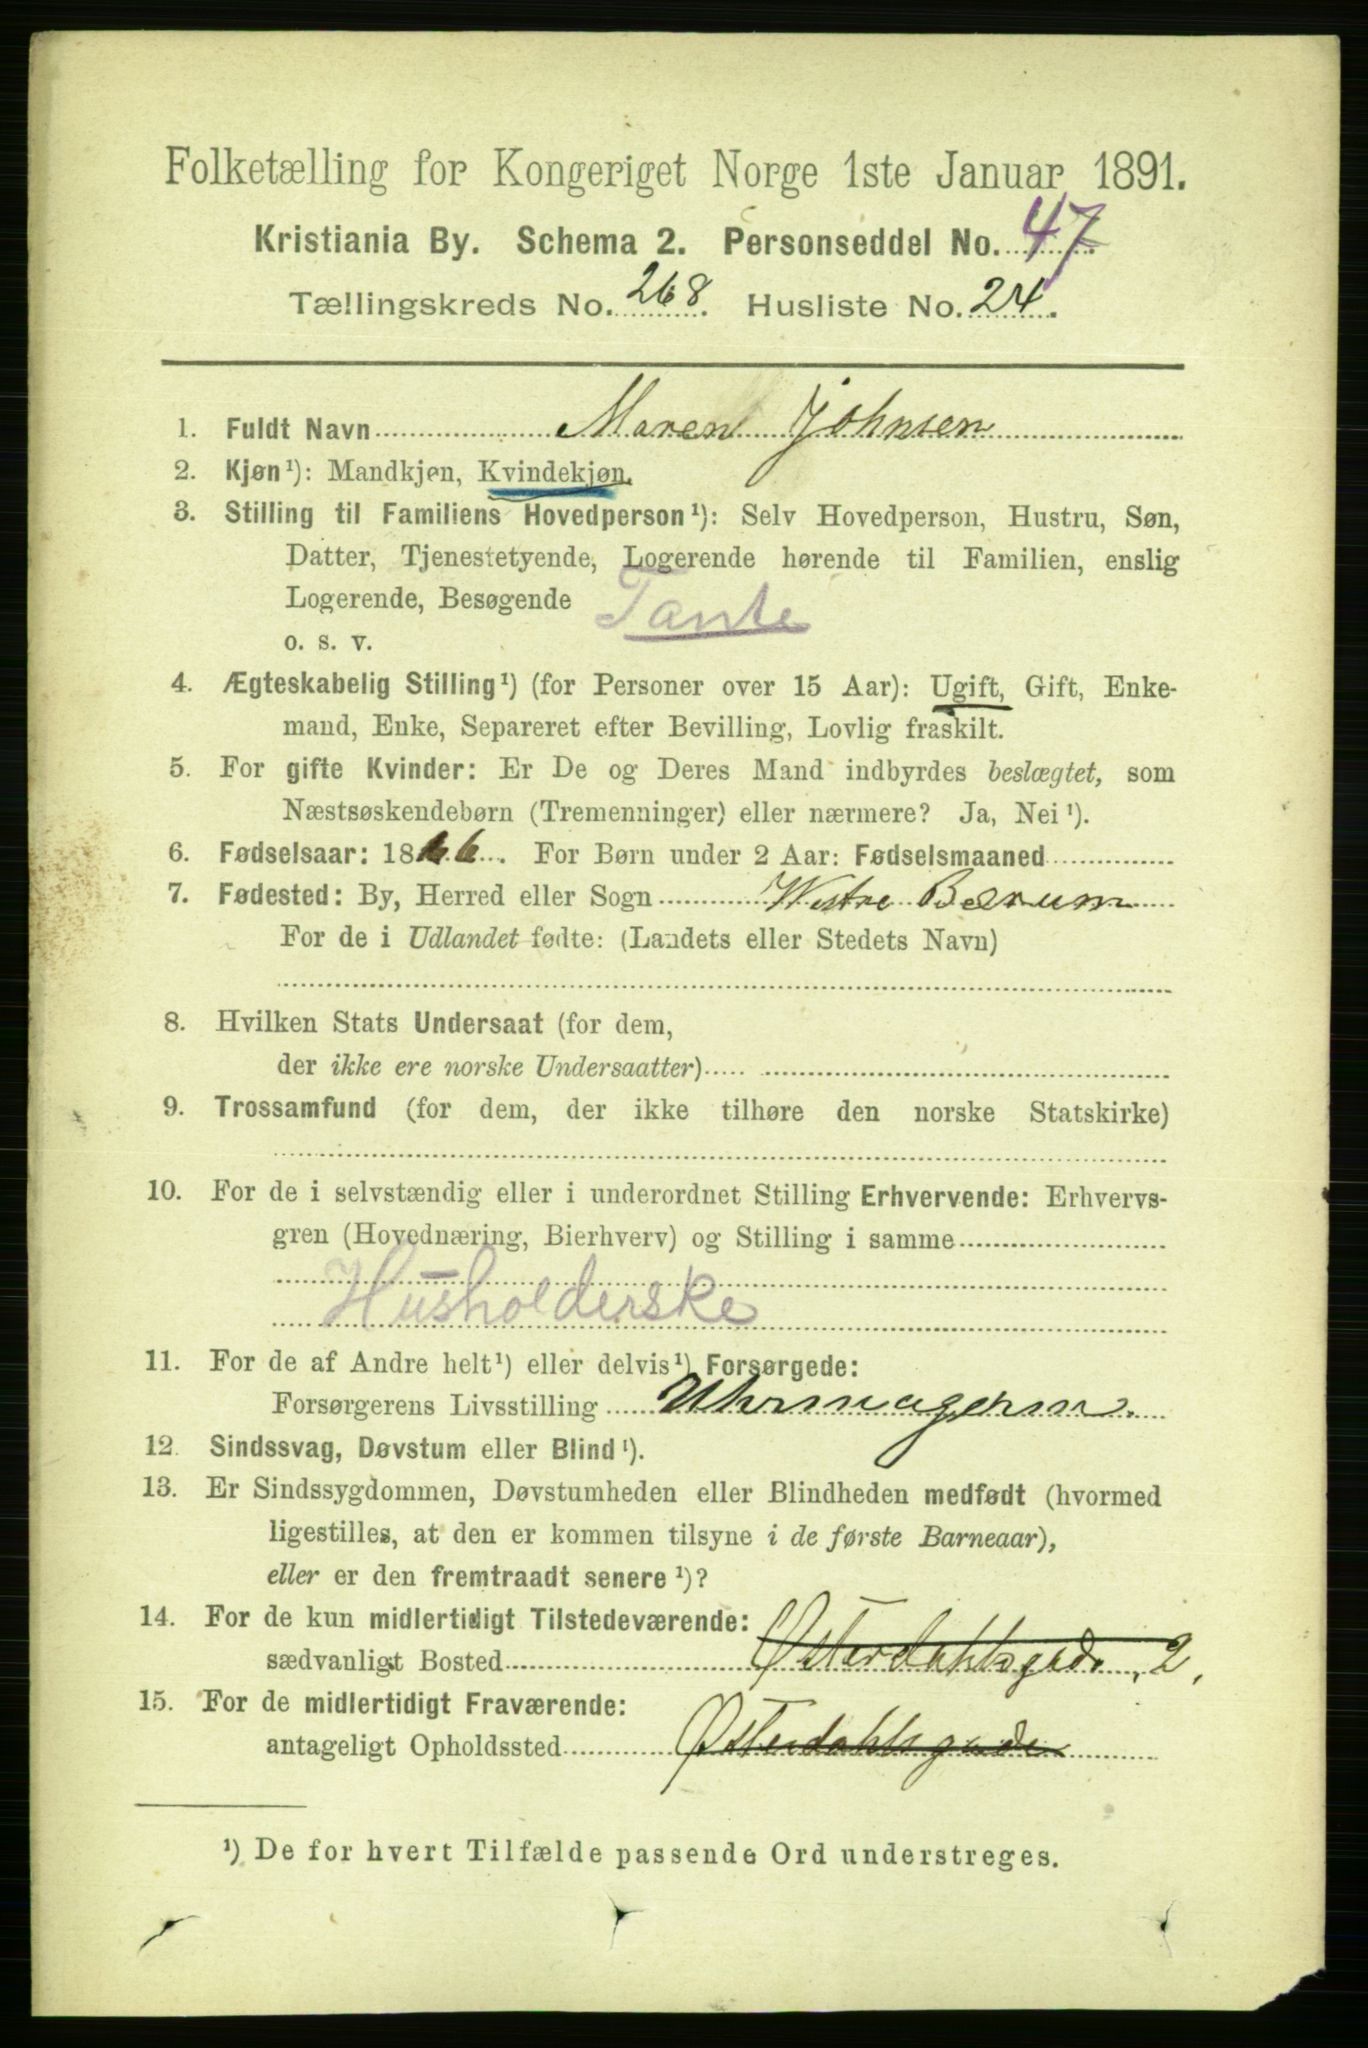 Folketælling for Kongeriget Norge 1ste Januar 1891.
Kristiania By. Schema 2. Personseddel No. 47
Tællingskreds No. 268. Husliste No. 24.
1. Fuldt Navn Maren Johnsen
2. Kjøn¹): Mandkjøn, Kvindekjøn.
3. Stilling til Familiens Hovedperson¹): Selv Hovedperson, Hustru, Søn,
Datter, Tjenestetyende, Logerende hørende til Familien, enslig
Logerende, Besøgende Tante
o. s. v.
4. Ægteskabelig Stilling¹) (for Personer over 15 Aar): Ugift, Gift, Enke-
mand, Enke, Separeret efter Bevilling, Lovlig fraskilt.
5. For gifte Kvinder: Er De og Deres Mand indbyrdes beslægtet, som
Næstsøskendebørn (Tremenninger) eller nærmere? Ja, Nei¹).
6. Fødselsaar: 1866. For Børn under 2 Aar: Fødselsmaaned
7. Fødested: By, Herred eller Sogn Westre Bærum
For de i Udlandet fødte: (Landets eller Stedets Navn)
8. Hvilken Stats Undersaat (for dem,
der ikke ere norske Undersaatter)
9. Trossamfund (for dem, der ikke tilhøre den norske Statskirke)
10. For de i selvstændig eller i underordnet Stilling Erhvervende: Erhvervs-
gren (Hovednæring, Bierhverv) og Stilling i samme
Husholderske
11. For de af Andre helt¹) eller delvis¹) Forsørgede:
Forsørgerens Livsstilling Uhrmagerin.
12. Sindssvag, Døvstum eller Blind¹).
13. Er Sindssygdommen, Døvstumheden eller Blindheden medfødt (hvormed
ligestilles, at den er kommen tilsyne i de første Barneaar),
eller er den fremtraadt senere¹)?
14. For de kun midlertidigt Tilstedeværende:
sædvanligt Bosted Østerdahlsgade 2,
15. For de midlertidigt Fraværende:
antageligt Opholdssted Østerdahlsgade
¹) De for hvert Tilfælde passende Ord understreges.